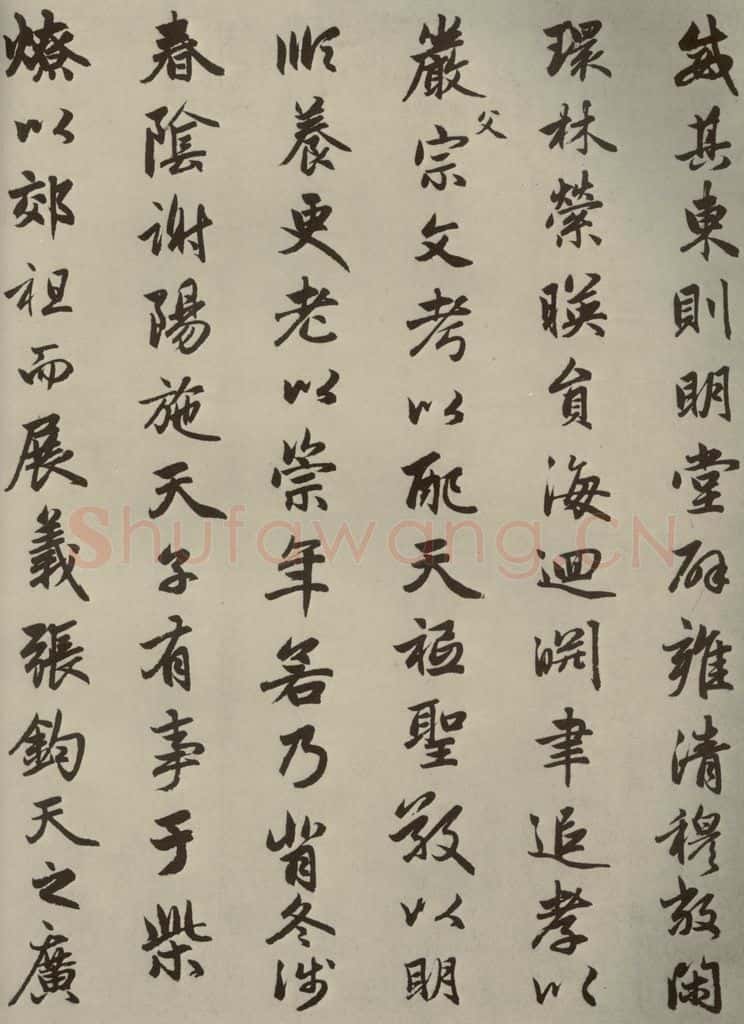 威其東則明堂辟雍清穆敞閑
環林縈暎員海迴淵聿追孝以
嚴父宗文考以配天祗聖敬以明
順養更老以崇年若乃背冬涉
春陰謝陽施天子有事于柴
燎以郊祖而展義張鈞天之廣
Shufawang.CN